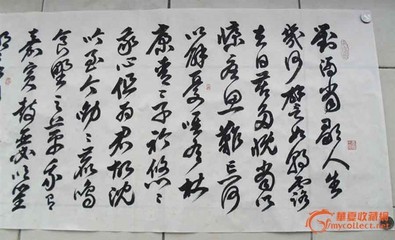 對酒當歌人生
幾何譬如朝露
去日苦多慨當以
慷憂思難忘何
以解憂唯有杜
康青〻子衿悠〻
我心但為君故沈
吟至今呦〻鹿鳴
食野之苹我有
嘉賓鼓瑟吹笙
華夏收藏網
mycollect.net